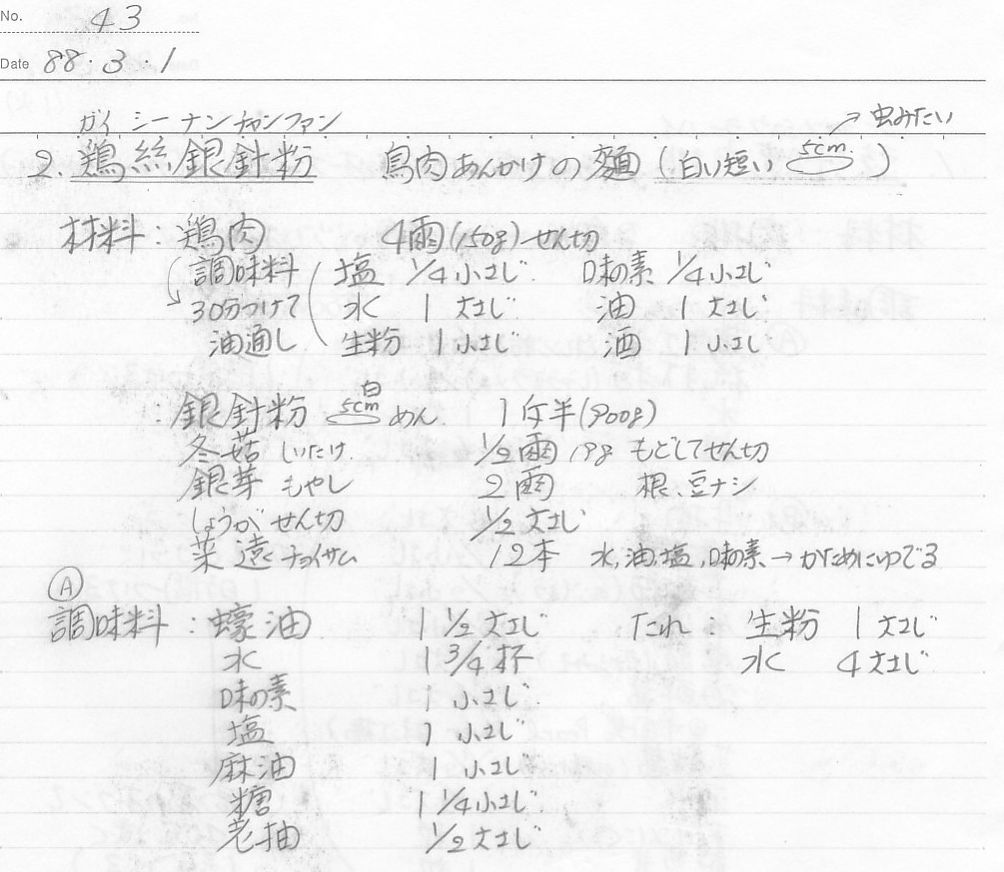 No. 43
Date 88・3・1
ガイ シー ナン チャン ファン
→虫みたい
2. 鶏絲銀針粉 鳥肉あんかけの麺 (白い短い 5cm )
材料: 鶏肉 4両(150g) せん切
調味料 塩 1/4小さじ 味の素 1/4小さじ
30分つけて 水 1大さじ 油 1大さじ
油通し 生粉 1小さじ 酒 1小さじ
: 銀針粉 白 5cm めん 1斤半(900g)
冬菇 しいたけ 1/2両 19g もどしてせん切
銀芽 もやし 2両 根、豆ナシ
しょうが せん切 1/2大さじ
菜遠 チョイサム 12本 水,油,塩,味の素→かためにゆでる
Ⓐ
調味料: 蠔油 1 1/2大さじ たれ: 生粉 1大さじ
水 1 3/4杯 水 4大さじ
味の素 1小さじ
塩 1小さじ
麻油 1小さじ
糖 1 1/4小さじ
老抽 1/2大さじ